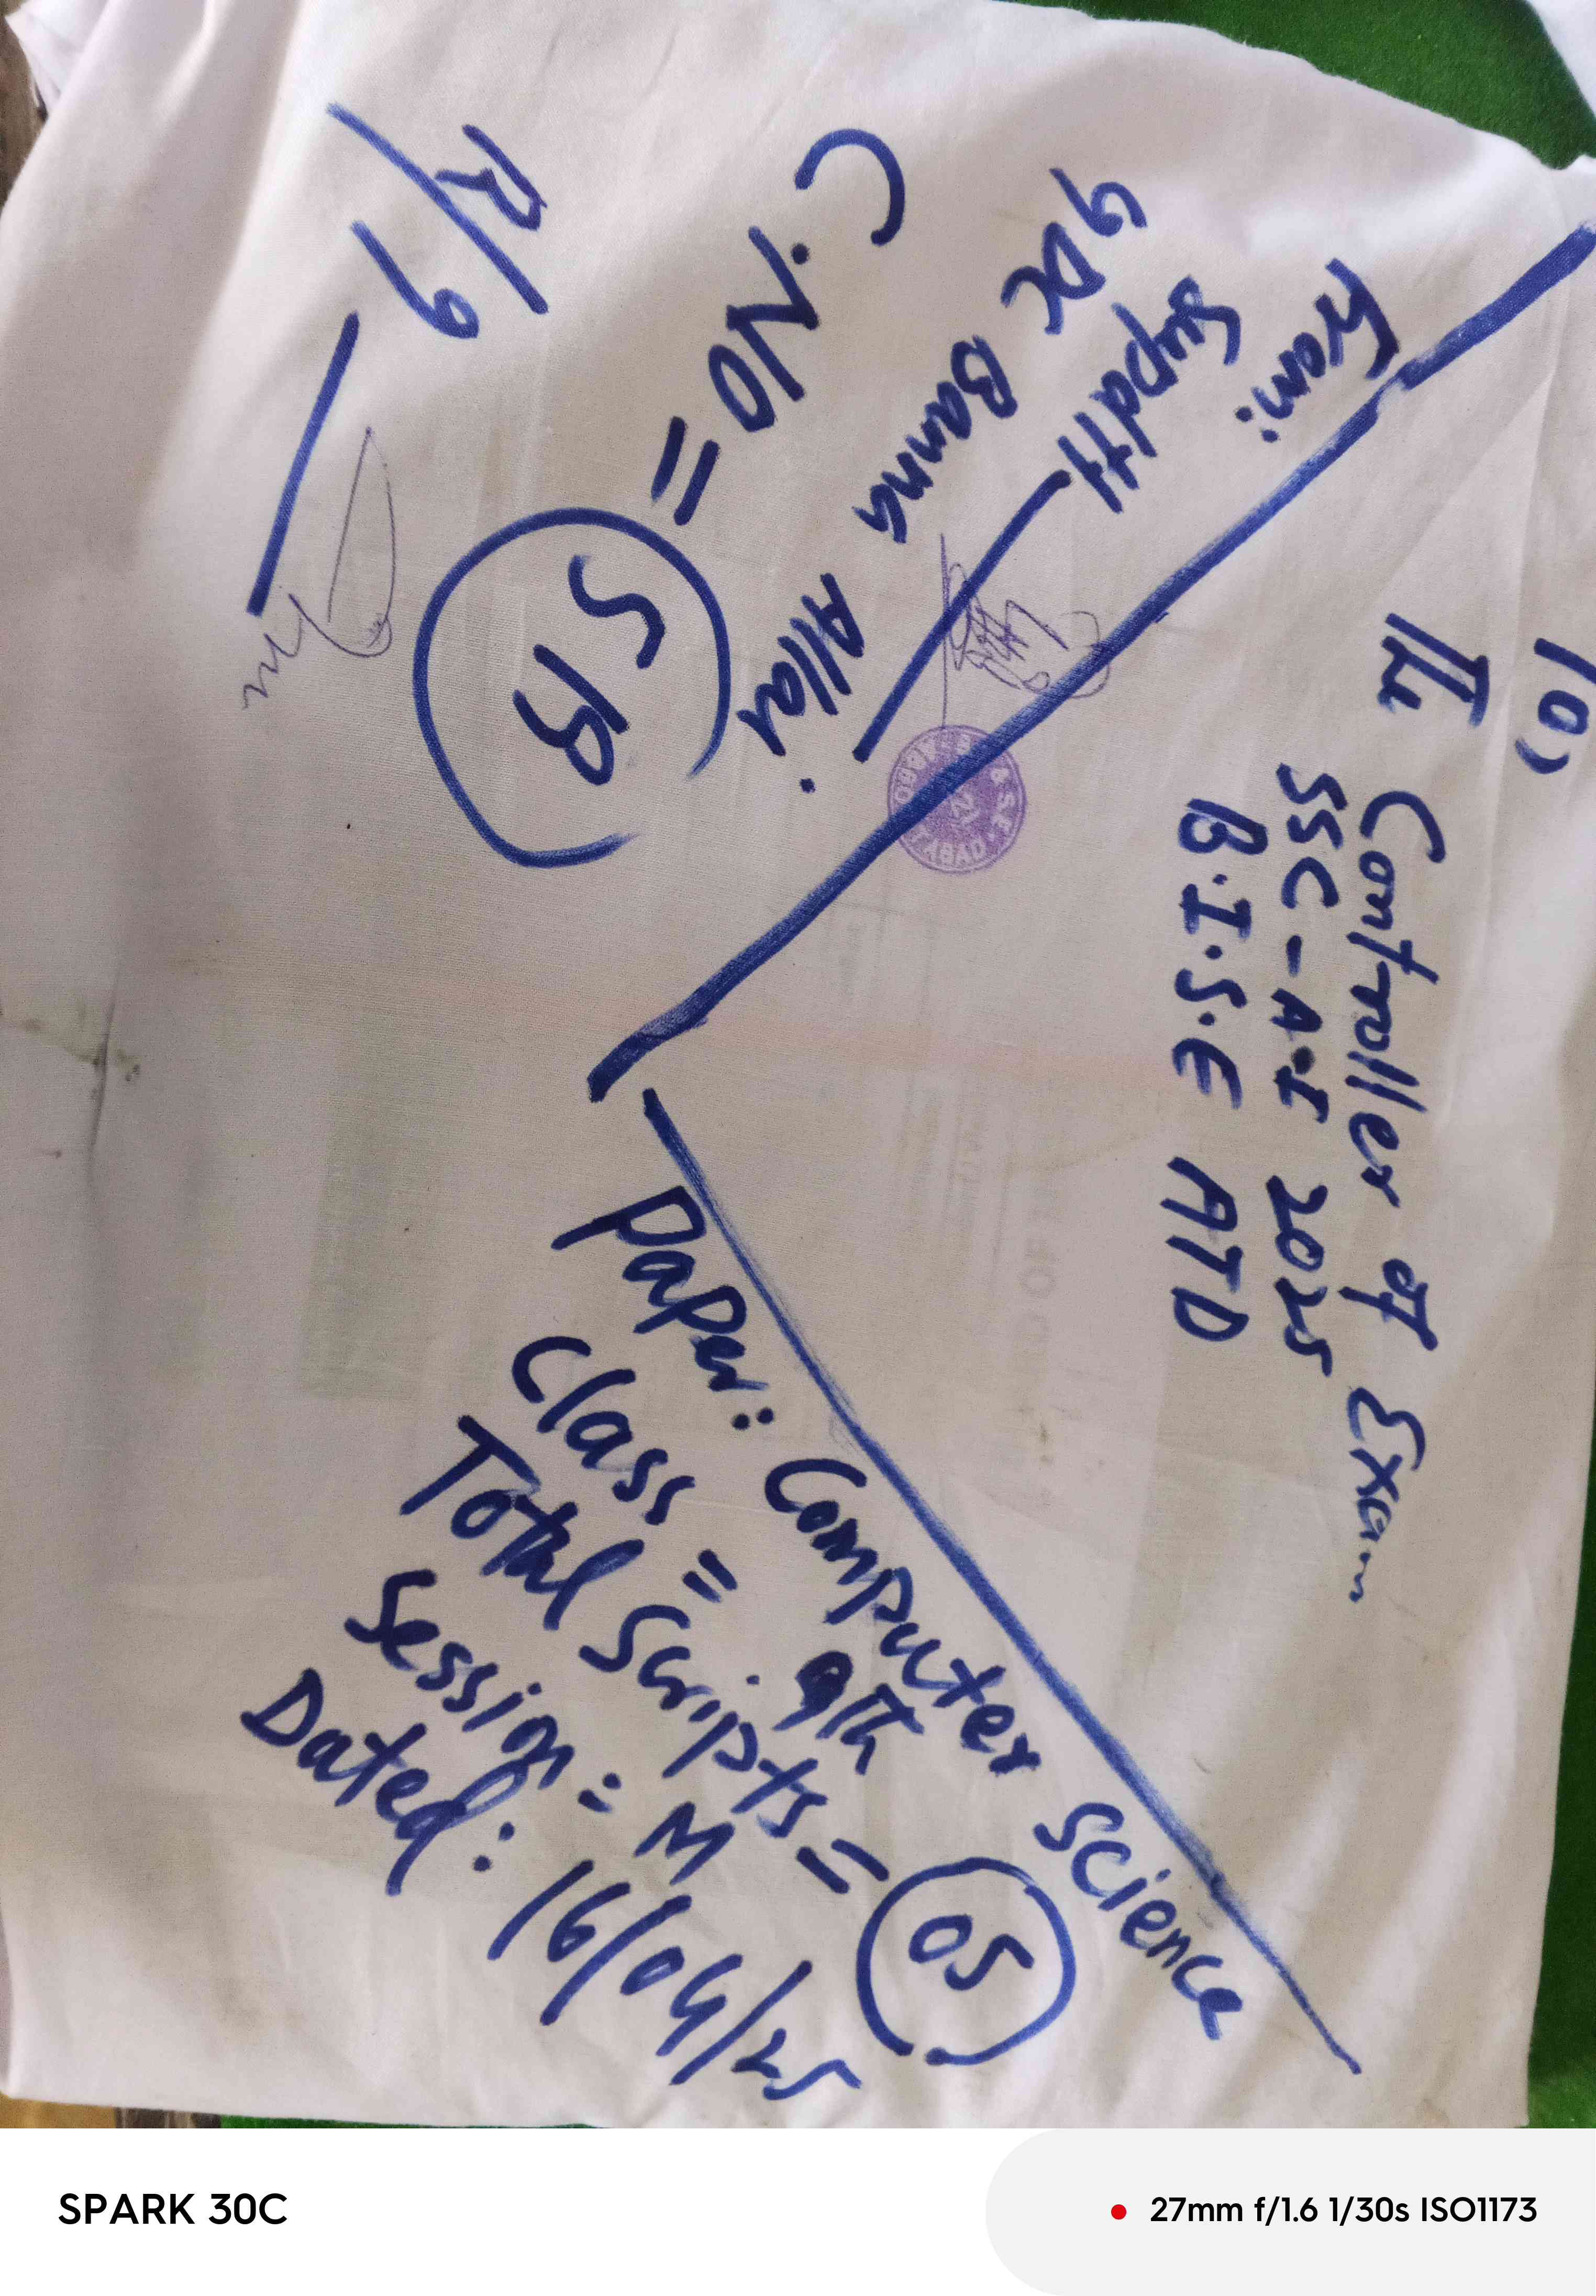 To,
The Controller of Exam
SSC-A-I 2025
B.I.S.E ATD
From:
Supdtt.
GDC Banna Allai.
C.NO = 518
P/9
Paper: Computer Science
Class = 9th
Total Scripts = 05
Session = M
Dated: 16/04/25
SPARK 30C
27mm f/1.6 1/30s ISO1173